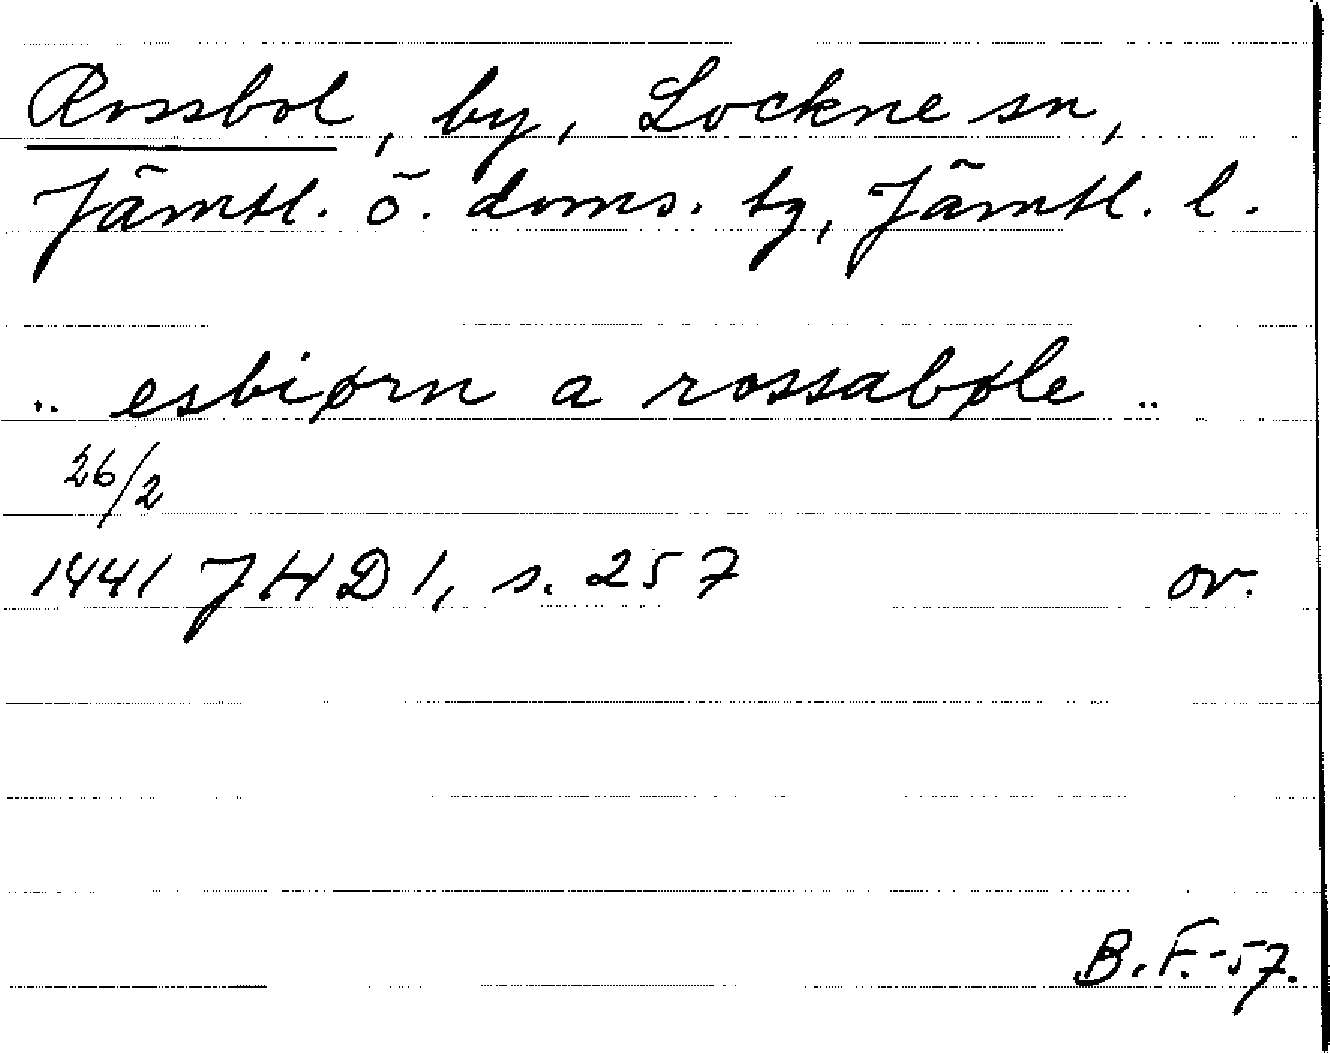 Rossbol, by, Lockne sn,
Jämtl. ö. doms. tg, Jämtl. l.
.. esbiørn a rossabøle ..
26/2
1441 JHD 1, s. 257 or.
B.F.-57.